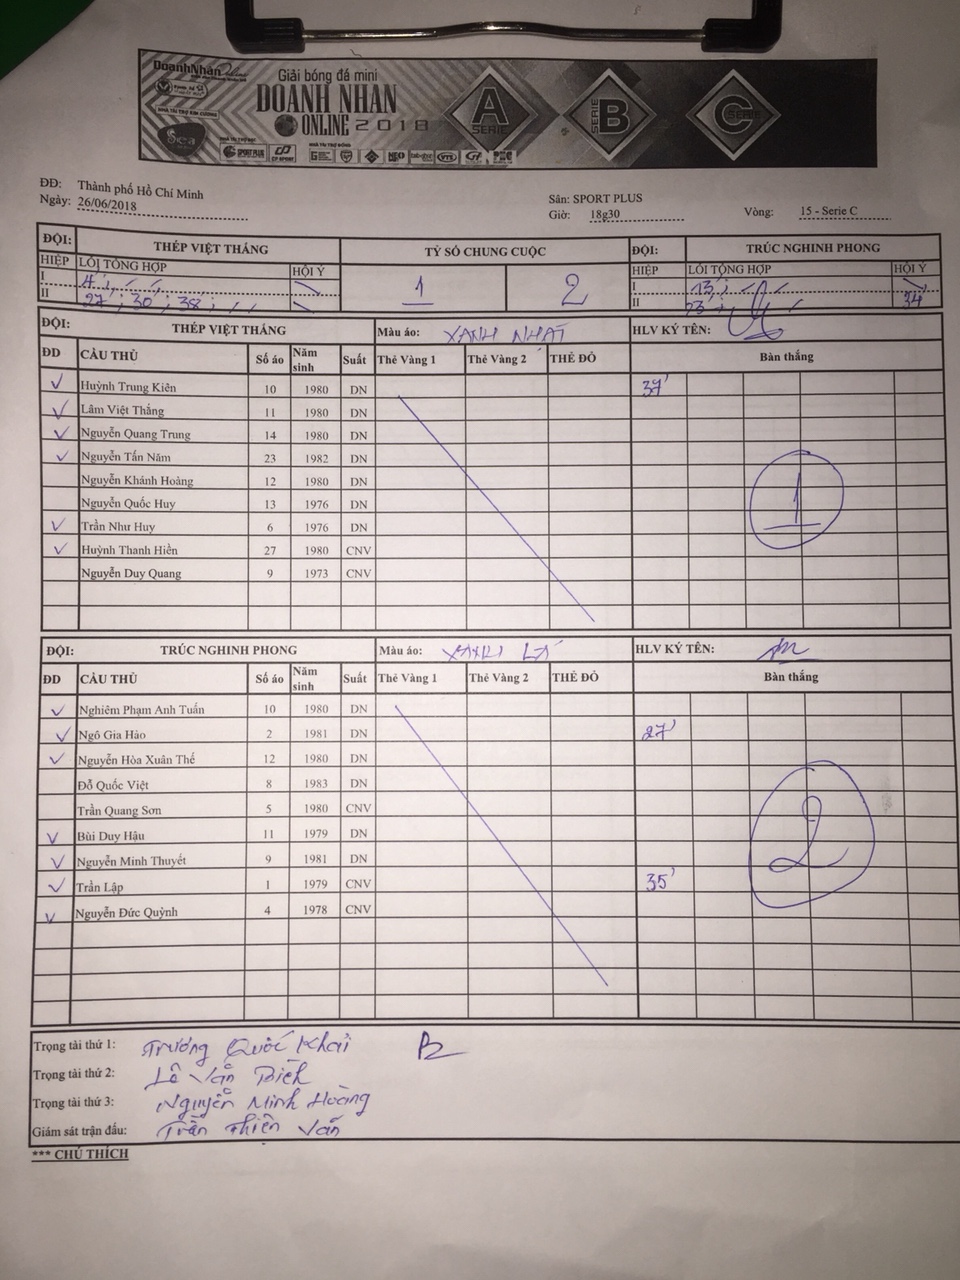 DoanhNhân
Giải bóng đá mini
DOANH NHÂN
ONLINE 2018
A SERIE
SERIE B
C SERIE
NHÀ TÀI TRỢ KIM CƯƠNG
Sea
SPORT PLUS
CP SPORT
ĐĐ: Thành phố Hồ Chí Minh
Sân: SPORT PLUS
Ngày: 26/06/2018
Giờ: 18g30
Vòng: 15 - Serie C
ĐỘI: THÉP VIỆT THẮNG TỶ SỐ CHUNG CUỘC ĐỘI: TRÚC NGHINH PHONG
HIỆP LỖI TỔNG HỢP HỘI Ý 1 2 HIỆP LỖI TỔNG HỢP HỘI Ý
I I 13'
II 27'; 30'; 38'; II 23'; 34'
ĐỘI: THÉP VIỆT THẮNG Màu áo: XANH NHẠT HLV KÝ TÊN:
ĐD CẦU THỦ Số áo Năm sinh Suất Thẻ Vàng 1 Thẻ Vàng 2 THẺ ĐỎ Bàn thắng
Huỳnh Trung Kiên 10 1980 DN 37'
Lâm Việt Thắng 11 1980 DN
Nguyễn Quang Trung 14 1980 DN
Nguyễn Tấn Năm 23 1982 DN
Nguyễn Khánh Hoàng 12 1980 DN 1
Nguyễn Quốc Huy 13 1976 DN
Trần Như Huy 6 1976 DN
Huỳnh Thanh Hiền 27 1980 CNV
Nguyễn Duy Quang 9 1973 CNV
ĐỘI: TRÚC NGHINH PHONG Màu áo: XANH LÁ HLV KÝ TÊN:
ĐD CẦU THỦ Số áo Năm sinh Suất Thẻ Vàng 1 Thẻ Vàng 2 THẺ ĐỎ Bàn thắng
Nghiêm Phạm Anh Tuấn 10 1980 DN
Ngô Gia Hào 2 1981 DN 27'
Nguyễn Hòa Xuân Thế 12 1980 DN
Đỗ Quốc Việt 8 1983 DN
Trần Quang Sơn 5 1980 CNV
Bùi Duy Hậu 11 1979 DN 2
Nguyễn Minh Thuyết 9 1981 DN
Trần Lập 1 1979 CNV 35'
Nguyễn Đức Quỳnh 4 1978 CNV
Trọng tài thứ 1: Trương Quốc Khải
Trọng tài thứ 2: Lê Văn
Trọng tài thứ 3: Nguyễn Minh Hoàng
Giám sát trận đấu: Trần Thiên Vấn
*** CHÚ THÍCH